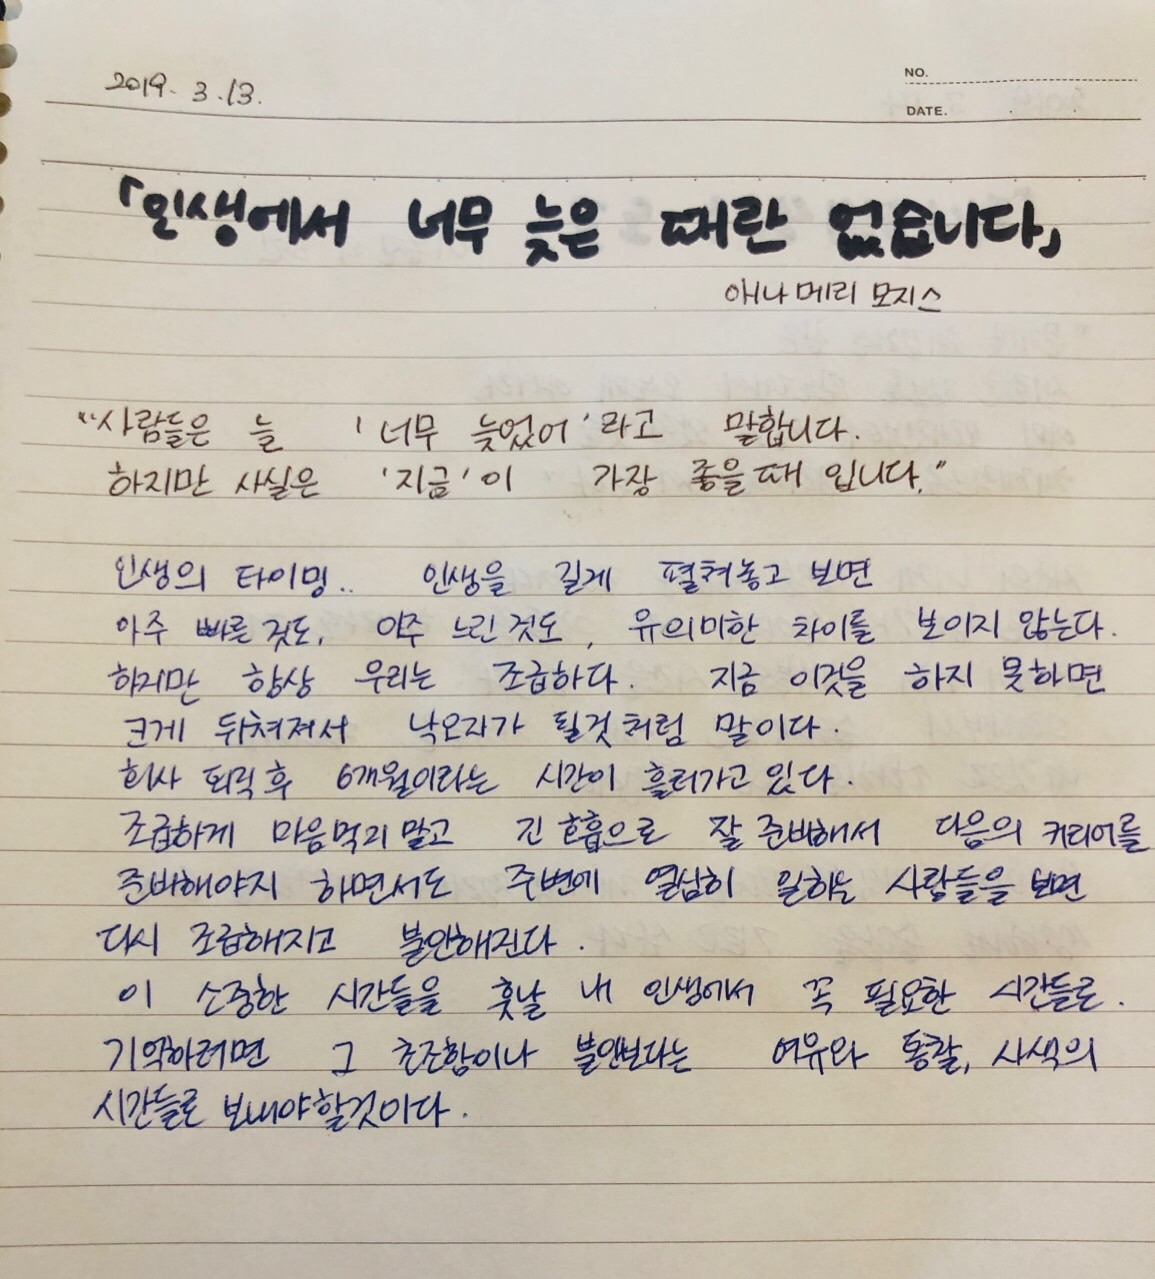 2019. 3.13.
NO.
DATE.
「인생에서 너무 늦은 때란 없습니다」
애나 메리 모지스
"사람들은 늘 '너무 늦었어'라고 말합니다.
하지만 사실은 '지금'이 가장 좋을때 입니다."
인생의 타이밍.. 인생을 길게 펼쳐놓고 보면
아주 빠른것도, 아주 느린것도, 유의미한 차이를 보이지 않는다.
하지만 항상 우리는 조급하다. 지금 이것을 하지 못하면
크게 뒤쳐져서 낙오자가 될것처럼 말이다.
회사 퇴직 후 6개월이라는 시간이 흘러가고 있다.
조급하게 마음먹지 말고 긴 호흡으로 잘 준비해서 다음의 커리어를
준비해야지 하면서도 주변에 열심히 일하는 사람들을 보면
다시 조급해지고 불안해진다.
이 소중한 시간들을 훗날 내 인생에서 꼭 필요한 시간들로.
기억하려면 그 초조함이나 불안보다는 여유와 통찰, 사색의
시간들로 보내야할것이다.